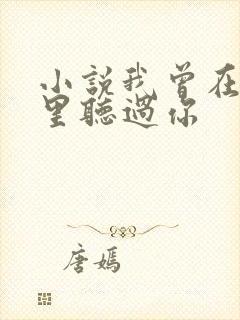 小説我曾在
里聽過你
唐嫣